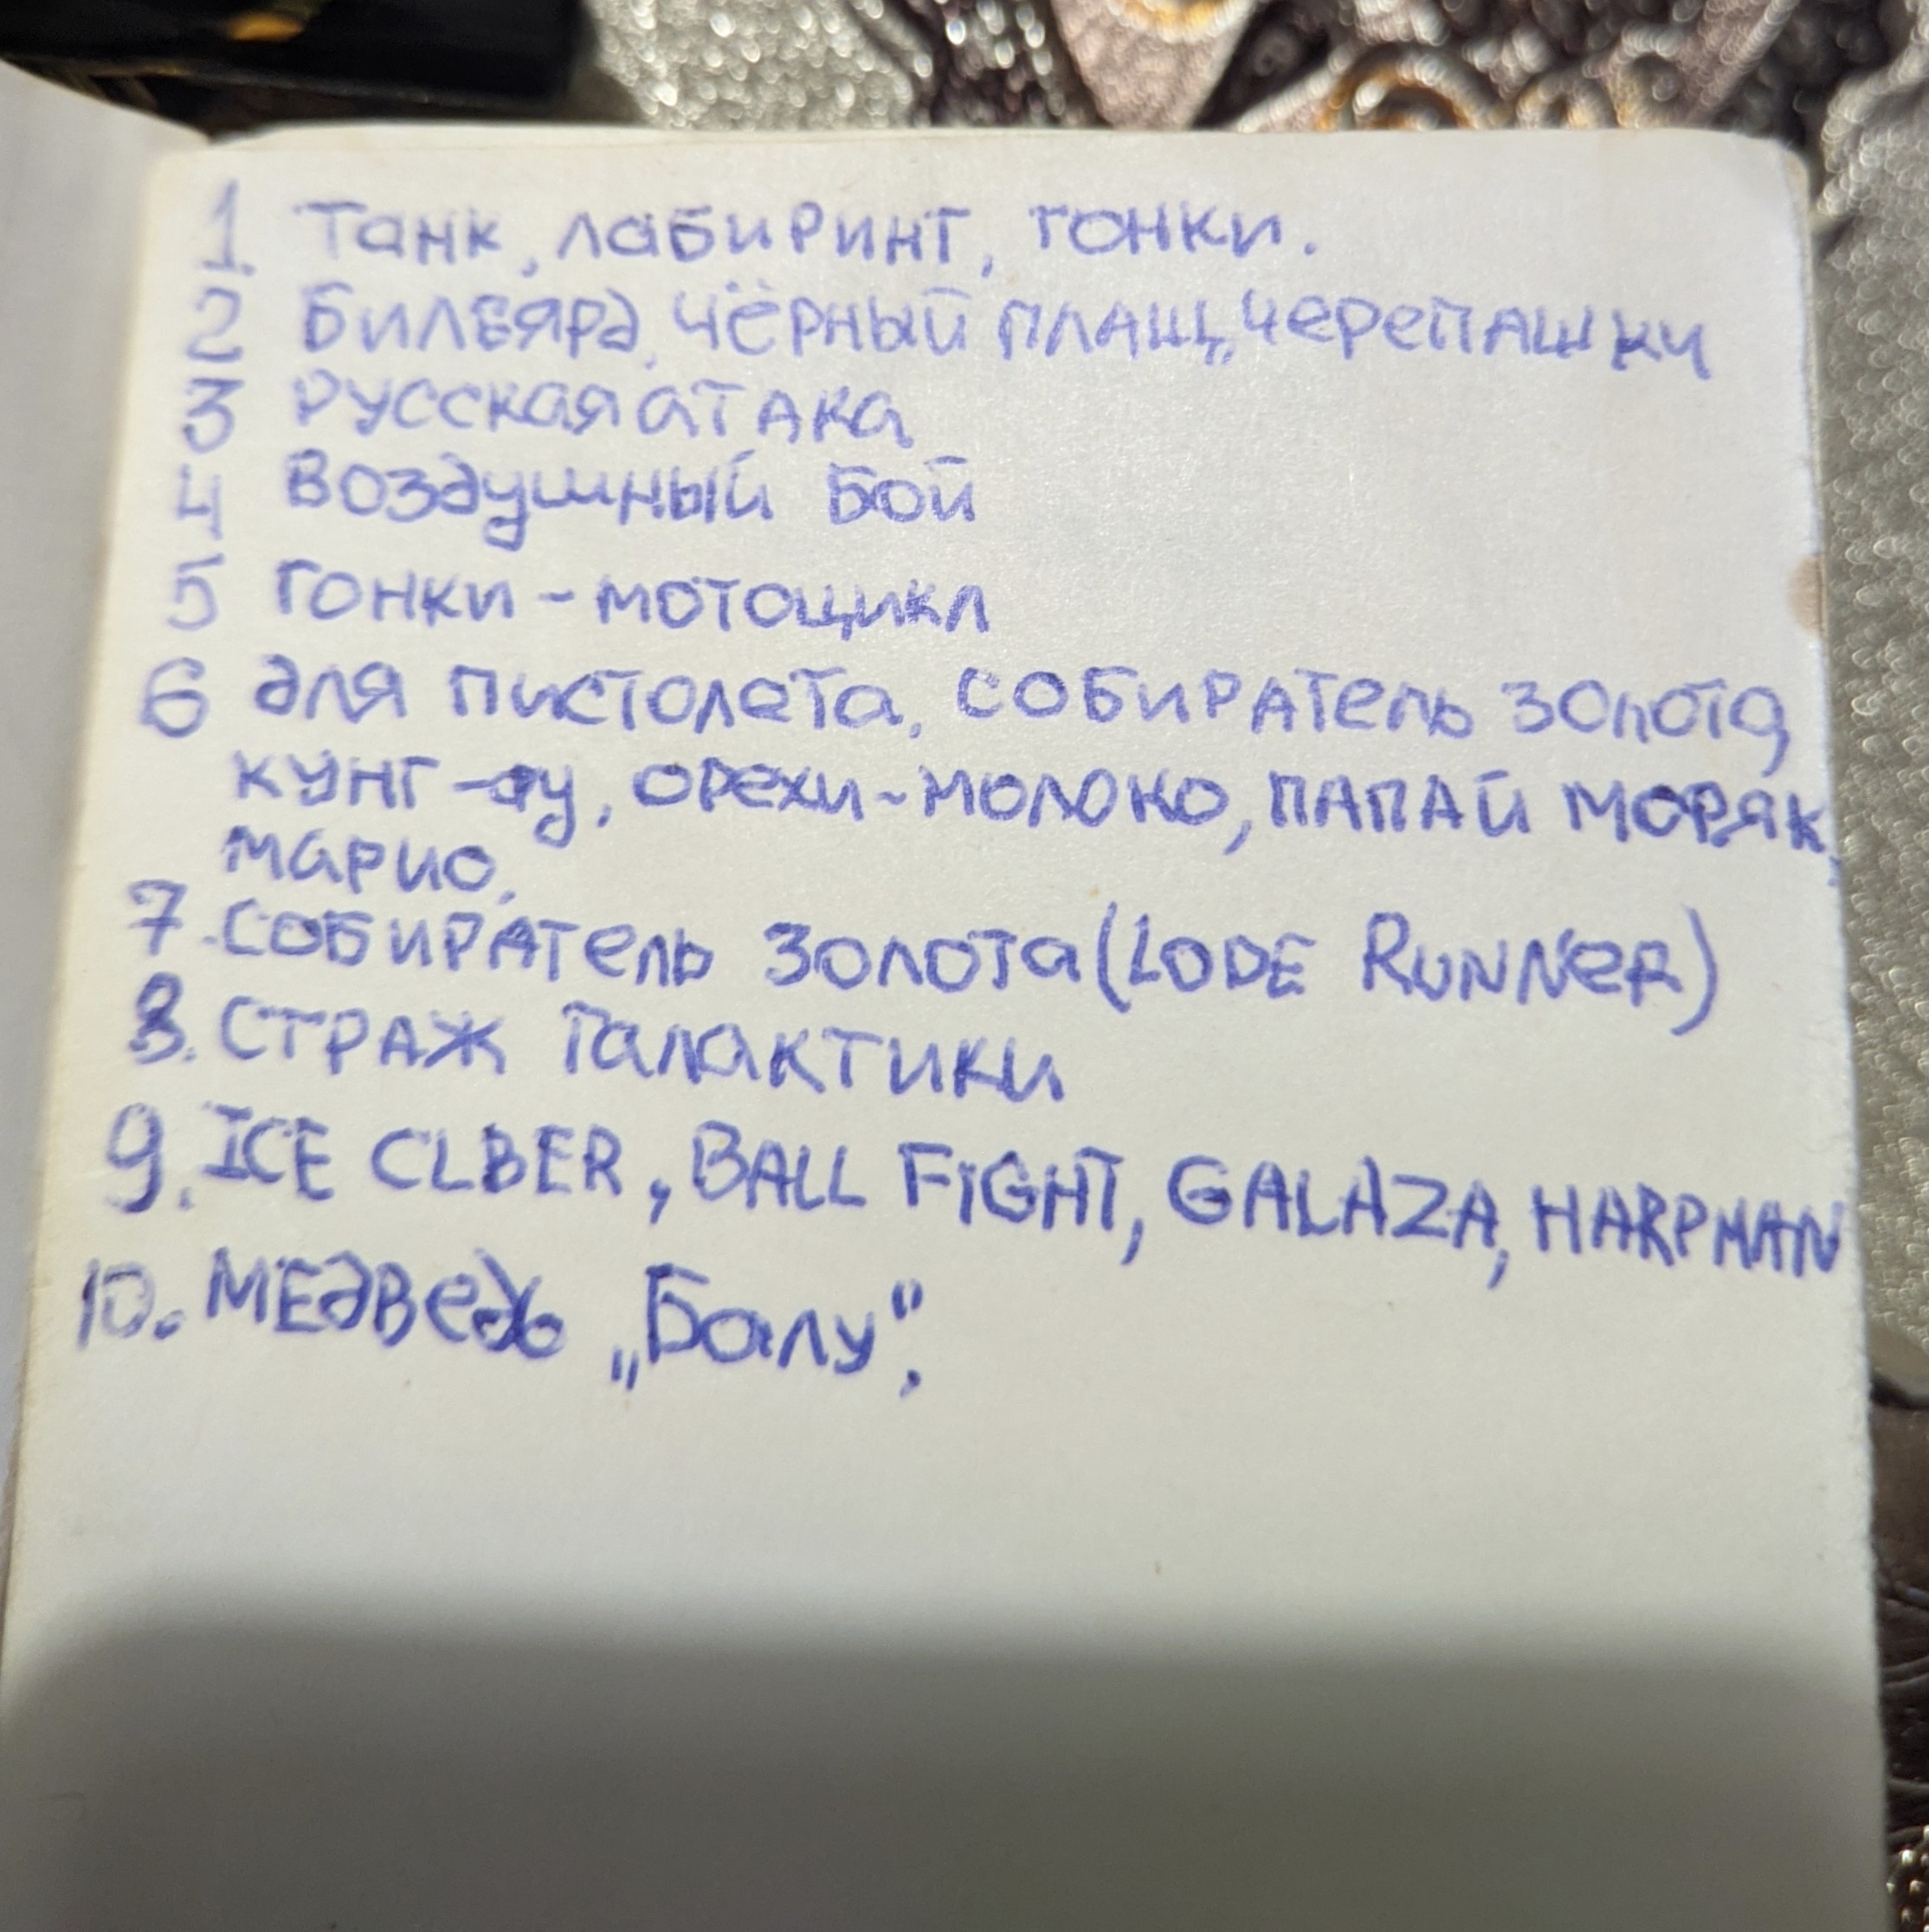 1. Танк, лабиринт, гонки.
2 Билеярд, чёрный плащ, черепашки
3 Русская атака
4 Воздушный бой
5 гонки-мотоцикл
6 для пистолета, собиратель золота,
кунг-фу, орехи-молоко, папай моряк,
марио.
7. Собиратель золота (LODE RUNNER)
8. Страж Галактики
9. ICE CLBER, BALL FIGHT, GALAZA, HARPMAN
10. Медведь „Балу".